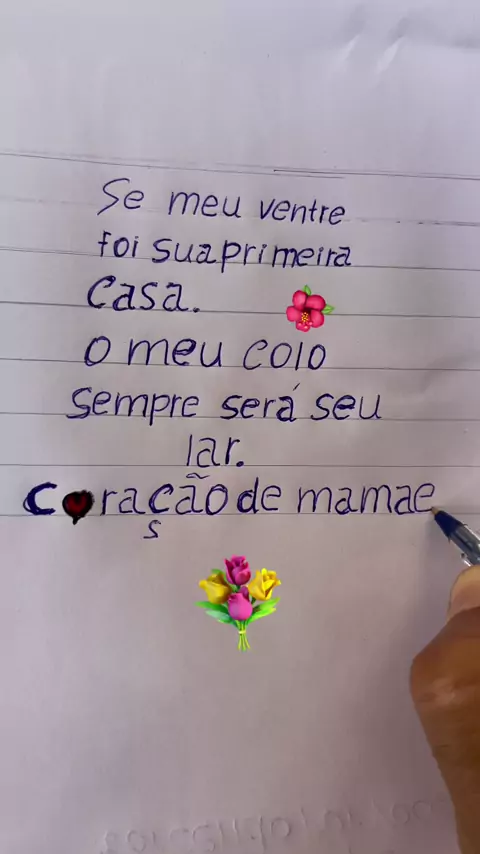 Se meu ventre
foi sua primeira
casa.
O meu colo
sempre será seu
lar.
Coração de mamae